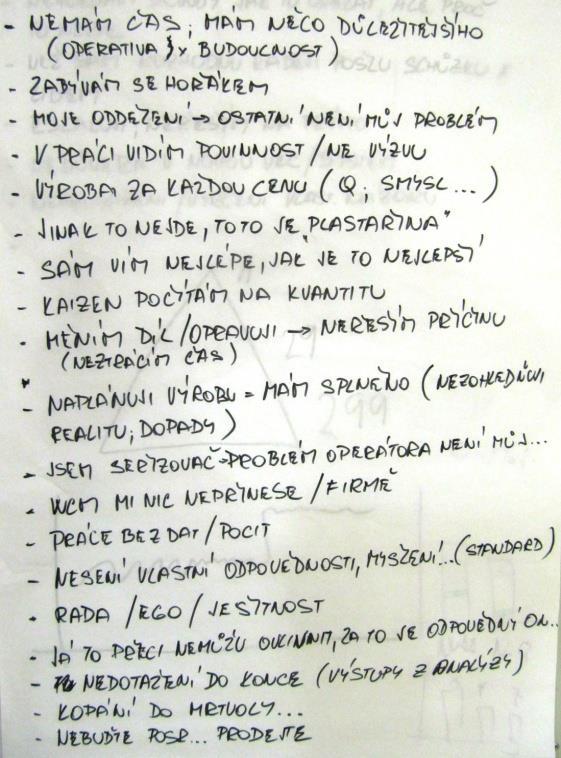 - NEMÁM ČAS; MÁM NĚCO DŮLEŽITĚJŠÍHO
(OPERATIVA x BUDOUCNOST)
- ZABÝVÁM SE HORŤÁKEM
- MOJE ODDĚLENÍ → OSTATNÍ NENÍ MŮJ PROBLÉM
- V PRÁCI VIDÍM POVINNOST/NE VÝZVU
- VÝROBA ZA KAŽDOU CENU (Q; SMYSL...)
- JINAK TO NEJDE, TOTO JE „PLASTAŘINA"
- SÁM VÍM NEJLÉPE, JAK JE TO NEJLEPŠÍ
- KAIZEN POČÍTÁM NA KVANTITU
- MĚNÍM DÍL/OPRAVUJI → NEŘEŠÍM PŘÍČINU
(NEZTRÁCÍM ČAS)
- NAPLÁNUJI VÝROBU = MÁM SPLNĚNO (NEZOHLEDŇUJI
REALITU; DOPADY)
- JSEM SEŘIZOVAČ → PROBLÉM OPERÁTORA NENÍ MŮJ...
- WCM MI NIC NEPŘINESE/FIRMĚ
- PRÁCE BEZ DAT/POCIT
- NESENÍ VLASTNÍ ODPOVĚDNOSTI, MYŠLENÍ...(STANDARD)
- RADA/EGO/JEŠITNOST
- JÁ TO PŘECI NEMŮŽU OVLIVNIT, ZA TO JE ODPOVĚDNÝ ON...
- NEDOTAŽENÍ DO KONCE (VÝSTUPY Z ANALÝZY)
- KOPÁNÍ DO MRTVOLY...
- NEBUĎTE POSR... PRODEJTE
299